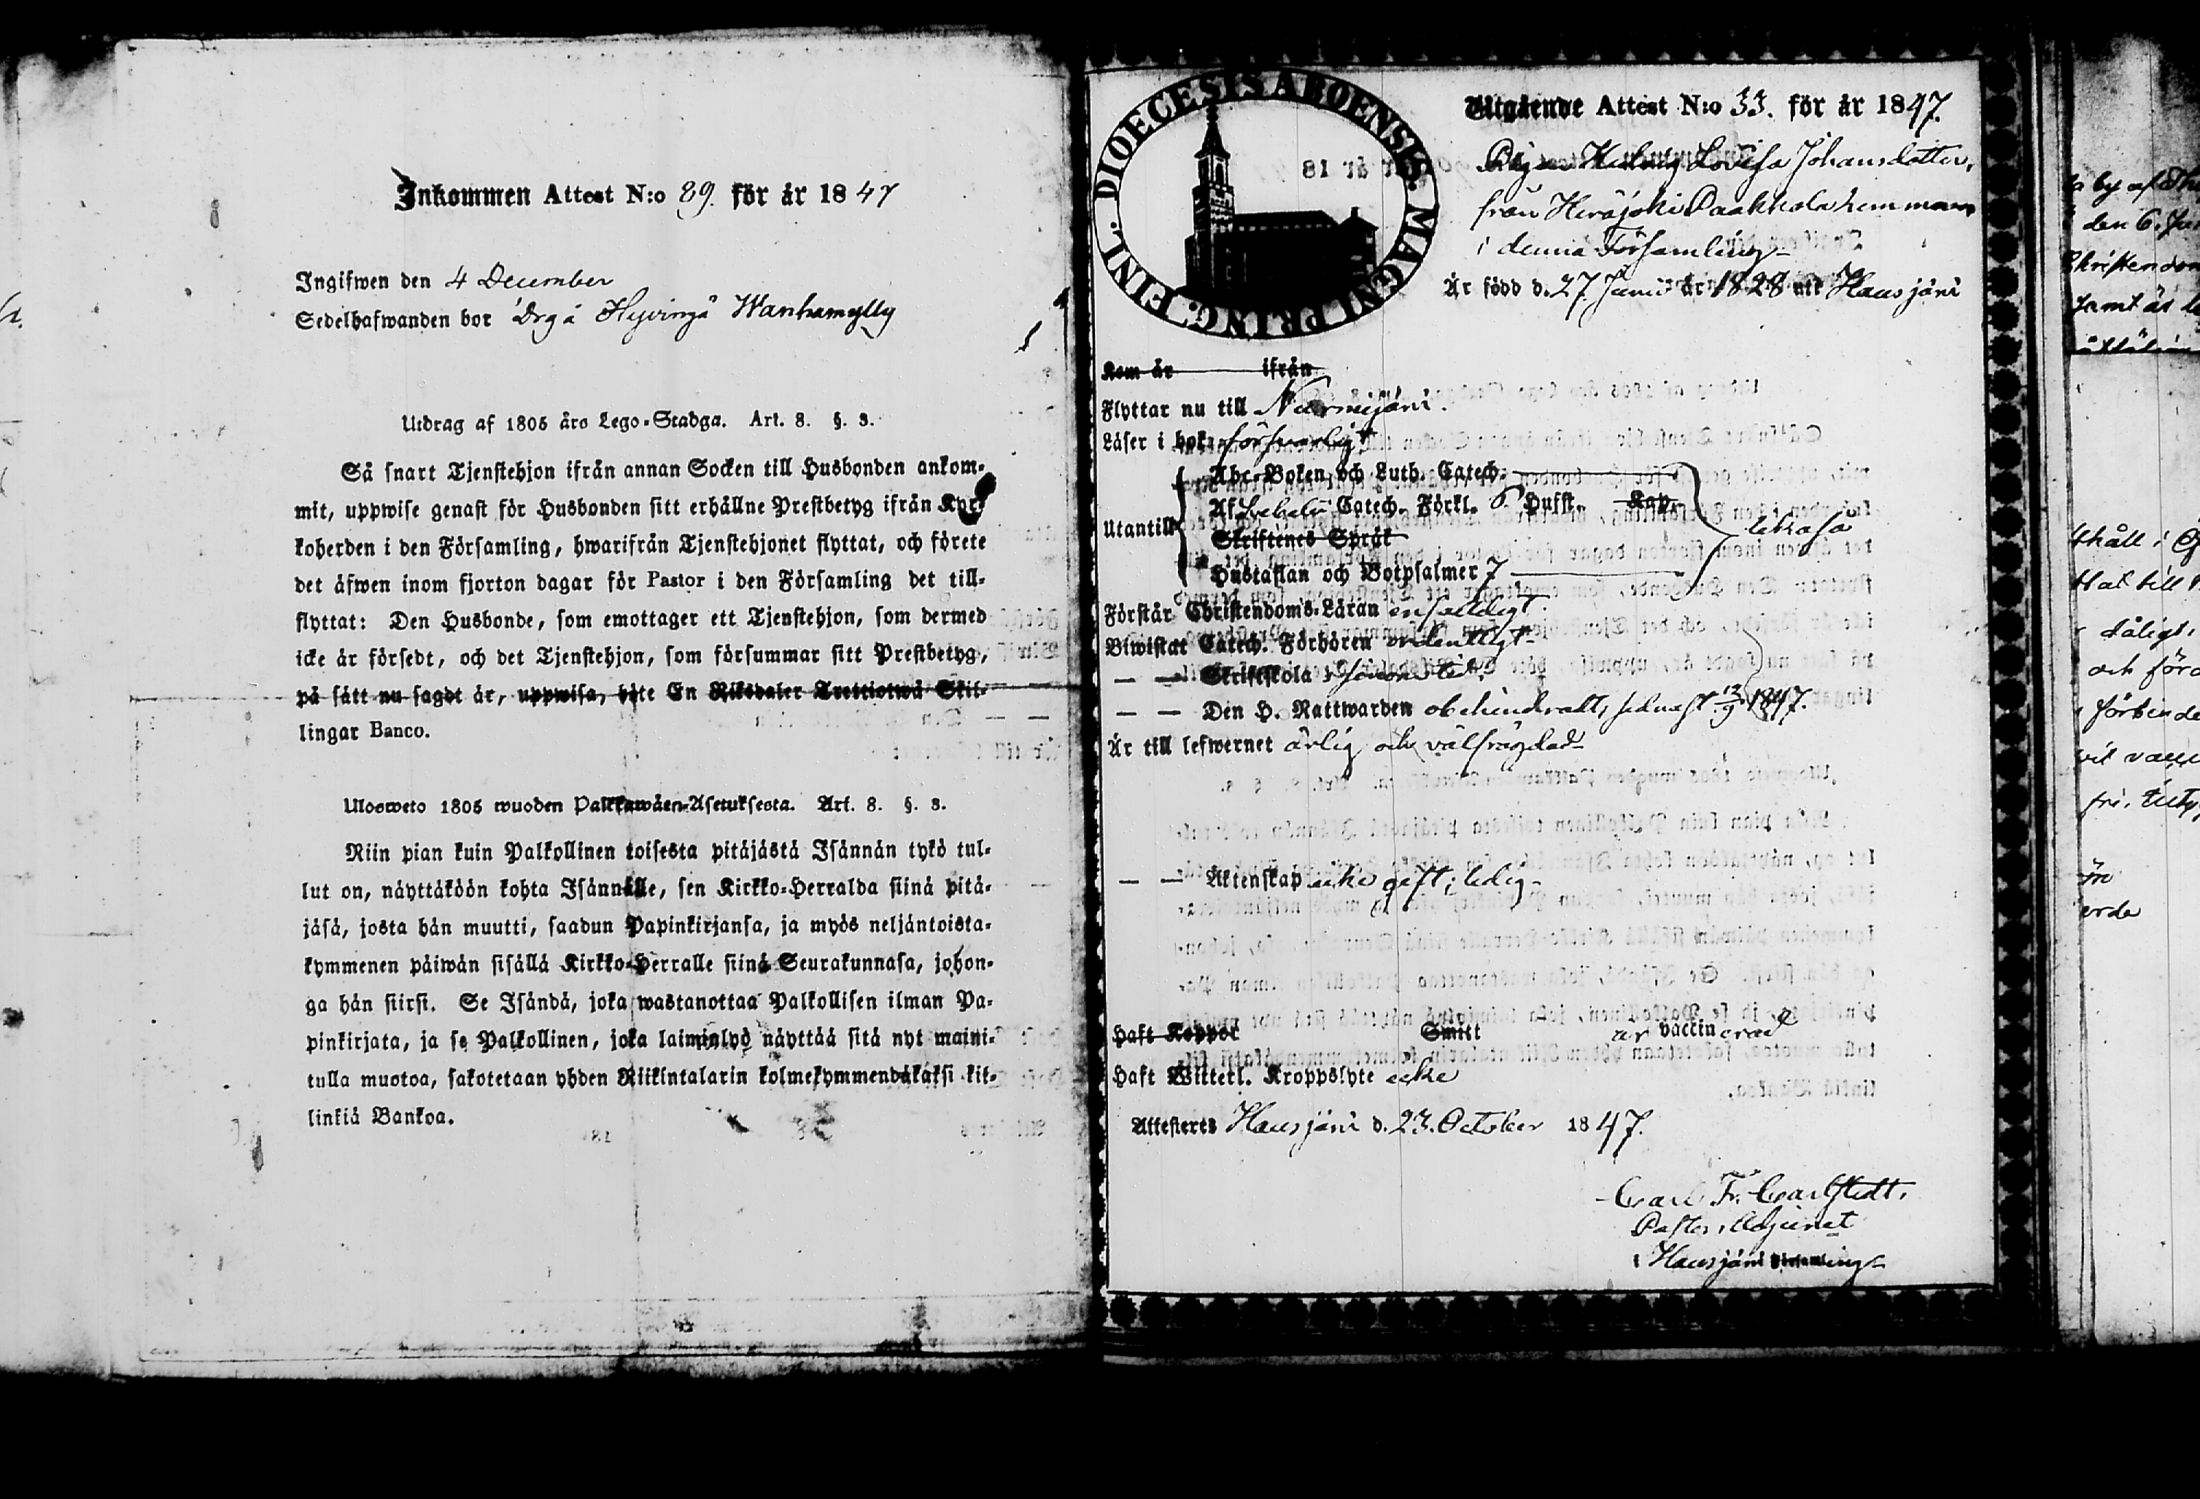 Inkommen Attest N:o 89. för år 1847
Ingifwen den 4 December
Sedelhafwanden bor Drg å Hyvingä Wanhamylly
Utdrag af 1805 års Lego-Stadga. Art. 8. §. 3.
Så snart Tjenstehjon ifrån annan Socken till Husbonden ankom-
mit, uppwise genast för Husbonden sitt erhållne Prestbetyg ifrån Kyr-
koherden i den Församling, hwarifrån Tjenstehjonet flyttat, och förete
det äfwen inom fjorton dagar för Pastor i den Församling det till-
flyttat: Den Husbonde, som emottager ett Tjenstehjon, som dermed
icke är försedt, och det Tjenstehjon, som försummar sitt Prestbetyg,
på sätt nu sagdt är, uppwisa, böte En Riksdaler Trettiotwå Skil-
lingar Banco.
Ulosweto 1805 wuoden Palkkawäen-Asetuksesta. Art. 8. §. 3.
Niin pian kuin Palkollinen toisesta pitäjästä Isännän tykö tul-
lut on, näyttäköön kohta Isännälle, sen Kirkko-Herralda siinä pitä-
jäsä, josta hän muutti, saadun Papinkirjansa, ja myös neljäntoista-
kymmenen päiwän sisällä Kirkko-Herralle siinä Seurakunnasa, johon-
ga hän siirsi. Se Isändä, joka wastanottaa Palkollisen ilman Pa-
pinkirjata, ja se Palkollinen, joka laiminlyö näyttää sitä nyt maini-
tulla muotoa, sakotetaan yhden Riikintalarin kolmekymmendäkaksi kil-
linkiä Bankoa.
DIOECESIS ABOENSIS. MAGNI PRINC. FINL.
Utgående Attest N:o 33. för år 1847.
Pigan Hedvig Lovisa Johansdotter,
från Herajoki Paakkola hemman
i denna Församling
Är född d. 27 Junii år 1828 uti Hausjärvi
Kom år ifrån
Flyttar nu till Nurmijärvi.
Läser i bok: försvarligt
Utantill
Abc-Boken och Luth. Catech.
Af Svebelii Catech. Förkl. 5 Hufst. Kap.
Skriftenes Språk
Hustaflan och Botpsalmer 7
Förstår Christendoms-Läran enfaldigt.
Biwistat Catech. Förhören ordentligt
— — Skriftskola
— — Den H. Nattwarden obehindradt, sednast 12/9 1847.
Är till lefwernet ärlig och välfrägdad
— — Äktenskap icke gift; ledig
Haft Koppor Smitt är vaccinerad
Haft Witterl. Kroppslyte icke
Attesteres Hausjärvi d. 23. October 1847.
Carl Fr. Carlstedt,
Pastors Adjunct
i Hausjärvi Församling